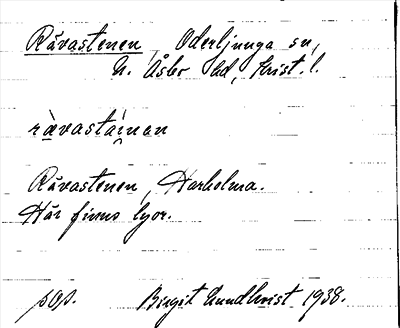 Rävastenen, Oderljunga sn,
N. Åsbo hd, Krist. l.
rävastäinan
Rävastenen, Harholma.
Här finns lyor.
pop. Birgit Lundkvist 1938.